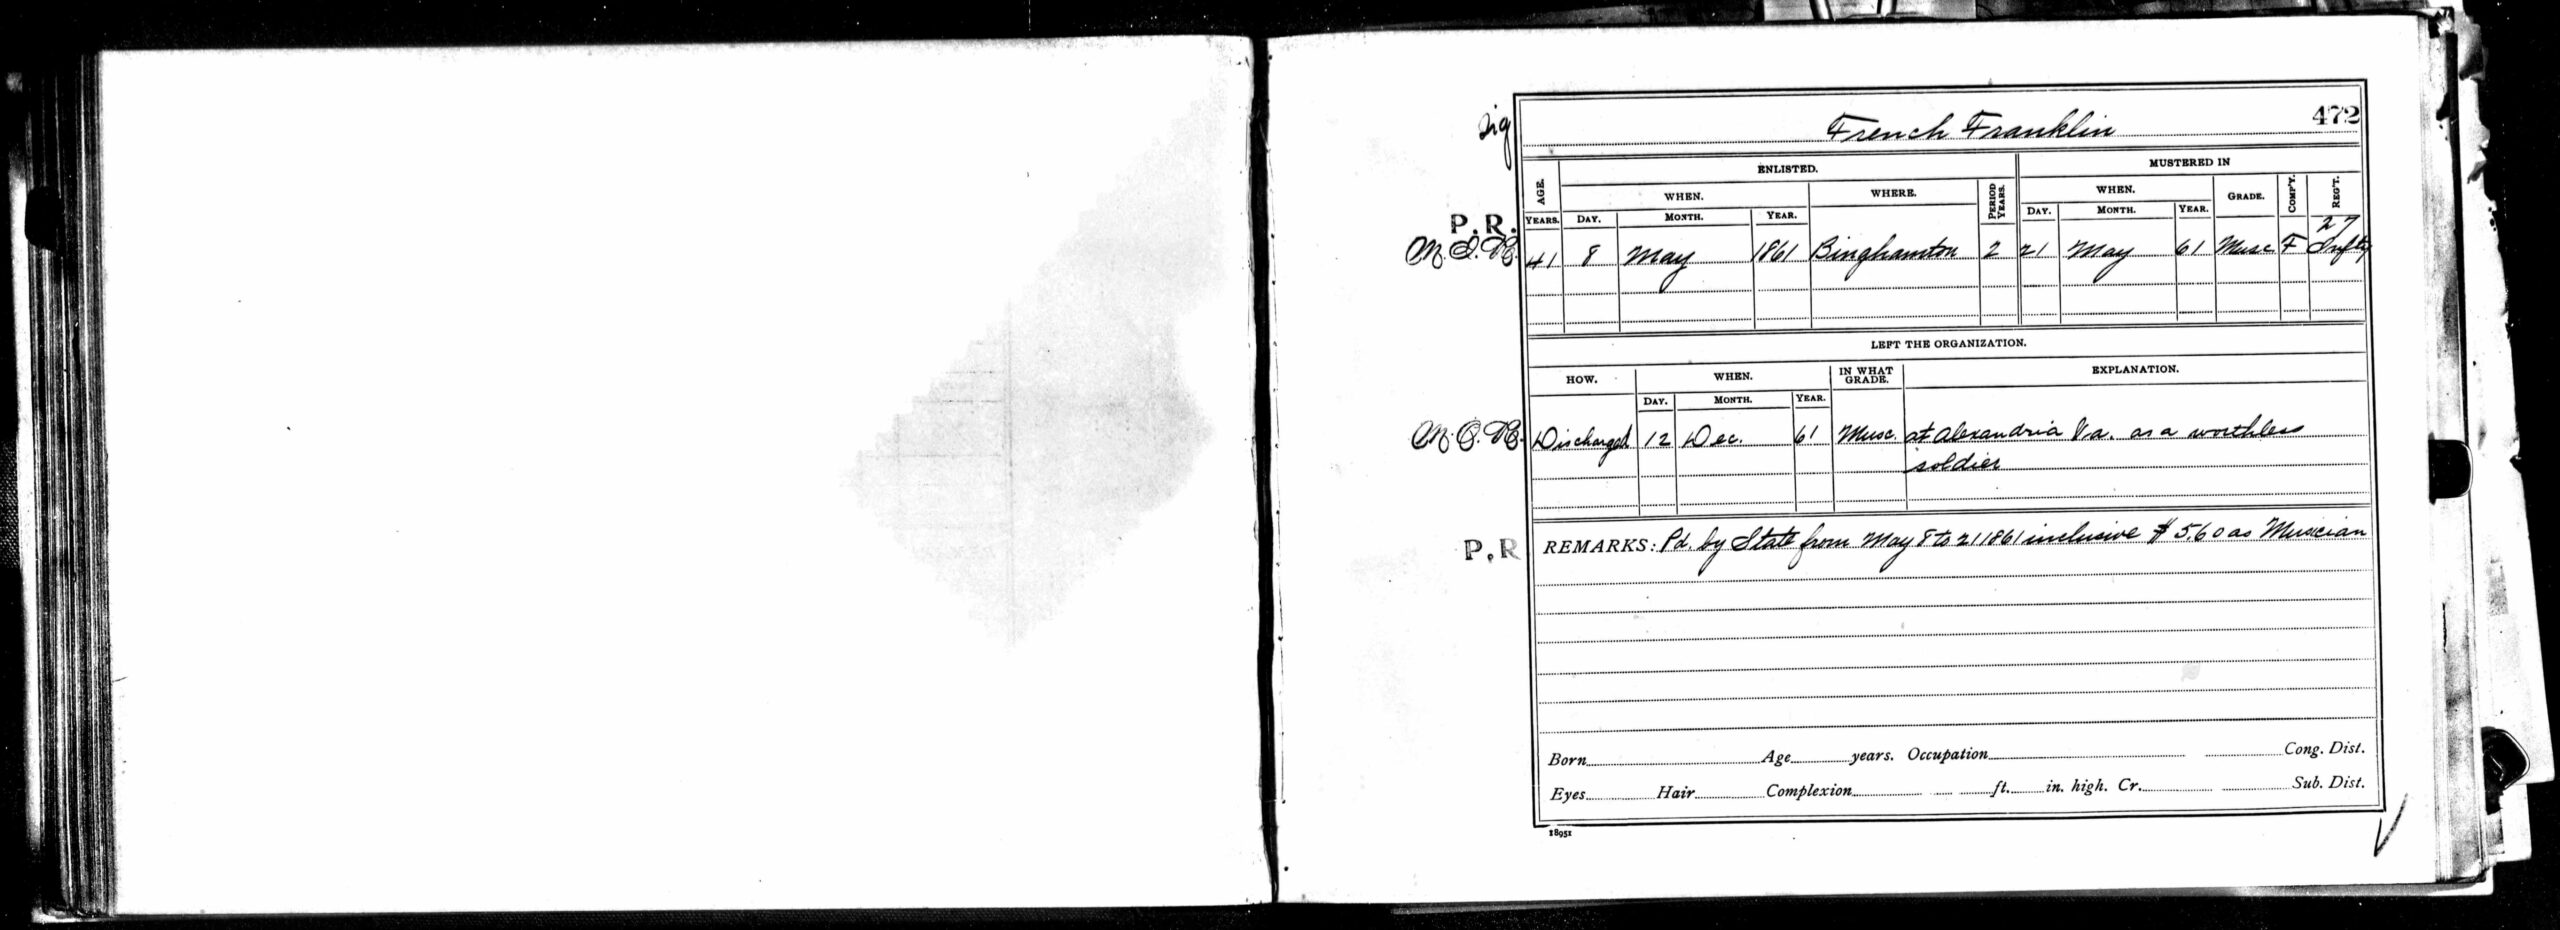 sig
French Franklin
472
AGE. ENLISTED. MUSTERED IN
WHEN. WHERE. PERIOD YEARS. WHEN. GRADE. COMP'Y. REG'T.
YEARS. DAY. MONTH. YEAR. DAY. MONTH. YEAR.
P.R.
27
M.I.R. 41 8 May 1861 Binghamton 2 21 May 61 Musc F Infty
LEFT THE ORGANIZATION.
HOW. WHEN. IN WHAT GRADE. EXPLANATION.
DAY. MONTH. YEAR.
M.O.R. Discharged 12 Dec. 61 Musc. at Alexandria Va. as a worthless
soldier
P.R REMARKS: Pd. by State from May 8 to 21 1861 inclusive $5.60 as Musician
Born Age years. Occupation Cong. Dist.
Eyes Hair Complexion ft. in. high. Cr. Sub. Dist.
18951